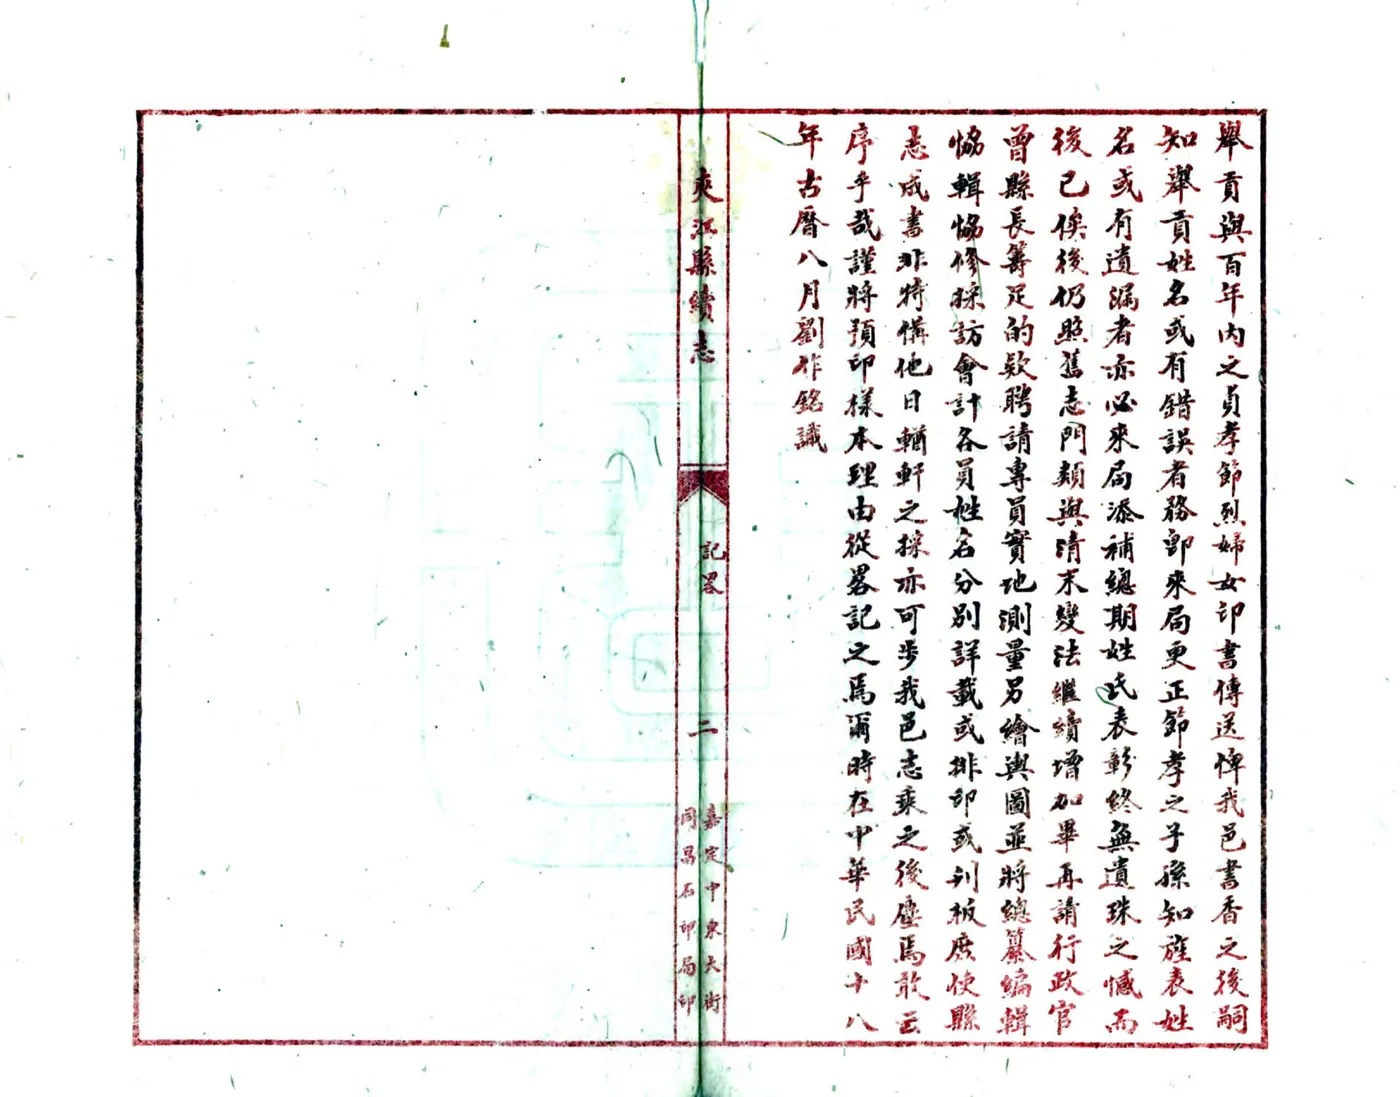 舉貢與百年內之貞孝節烈婦女印書傳送俾我邑書香之後嗣
知舉貢姓名或有錯誤者務卽來局更正節孝之子孫知旌表姓
名或有遺漏者亦必來局添補總期姓氏表彰終無遺珠之憾而
後已俟後仍照舊志門類與清末變法繼續增加畢再請行政官
曾縣長籌足的欵聘請專員實地測量另繪輿圖並將總纂編輯
恊輯恊修採訪會計各員姓名分別詳載或排印或刊板庶使縣
志成書非特備他日輶軒之採亦可步我邑志乘之後塵焉敢云
序乎哉謹將預印樣本理由從畧記之焉爾時在中華民國十八
年古曆八月劉作銘識
夾江縣續志
記畧
二
嘉定中東大街
同昌石印局印